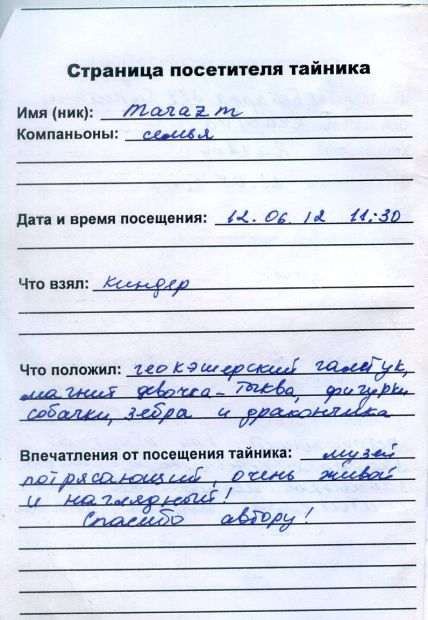 Страница посетителя тайника
Имя (ник): marazm
Компаньоны: семья
Дата и время посещения: 12.06.12 11:30
Что взял: киндер
Что положил: геокэшерский галстук,
магнит девочка-тыква, фигурки
собачки, зебра и дракончика
Впечатления от посещения тайника: музей
потрясающий, очень живой
и наглядный!
Спасибо автору!